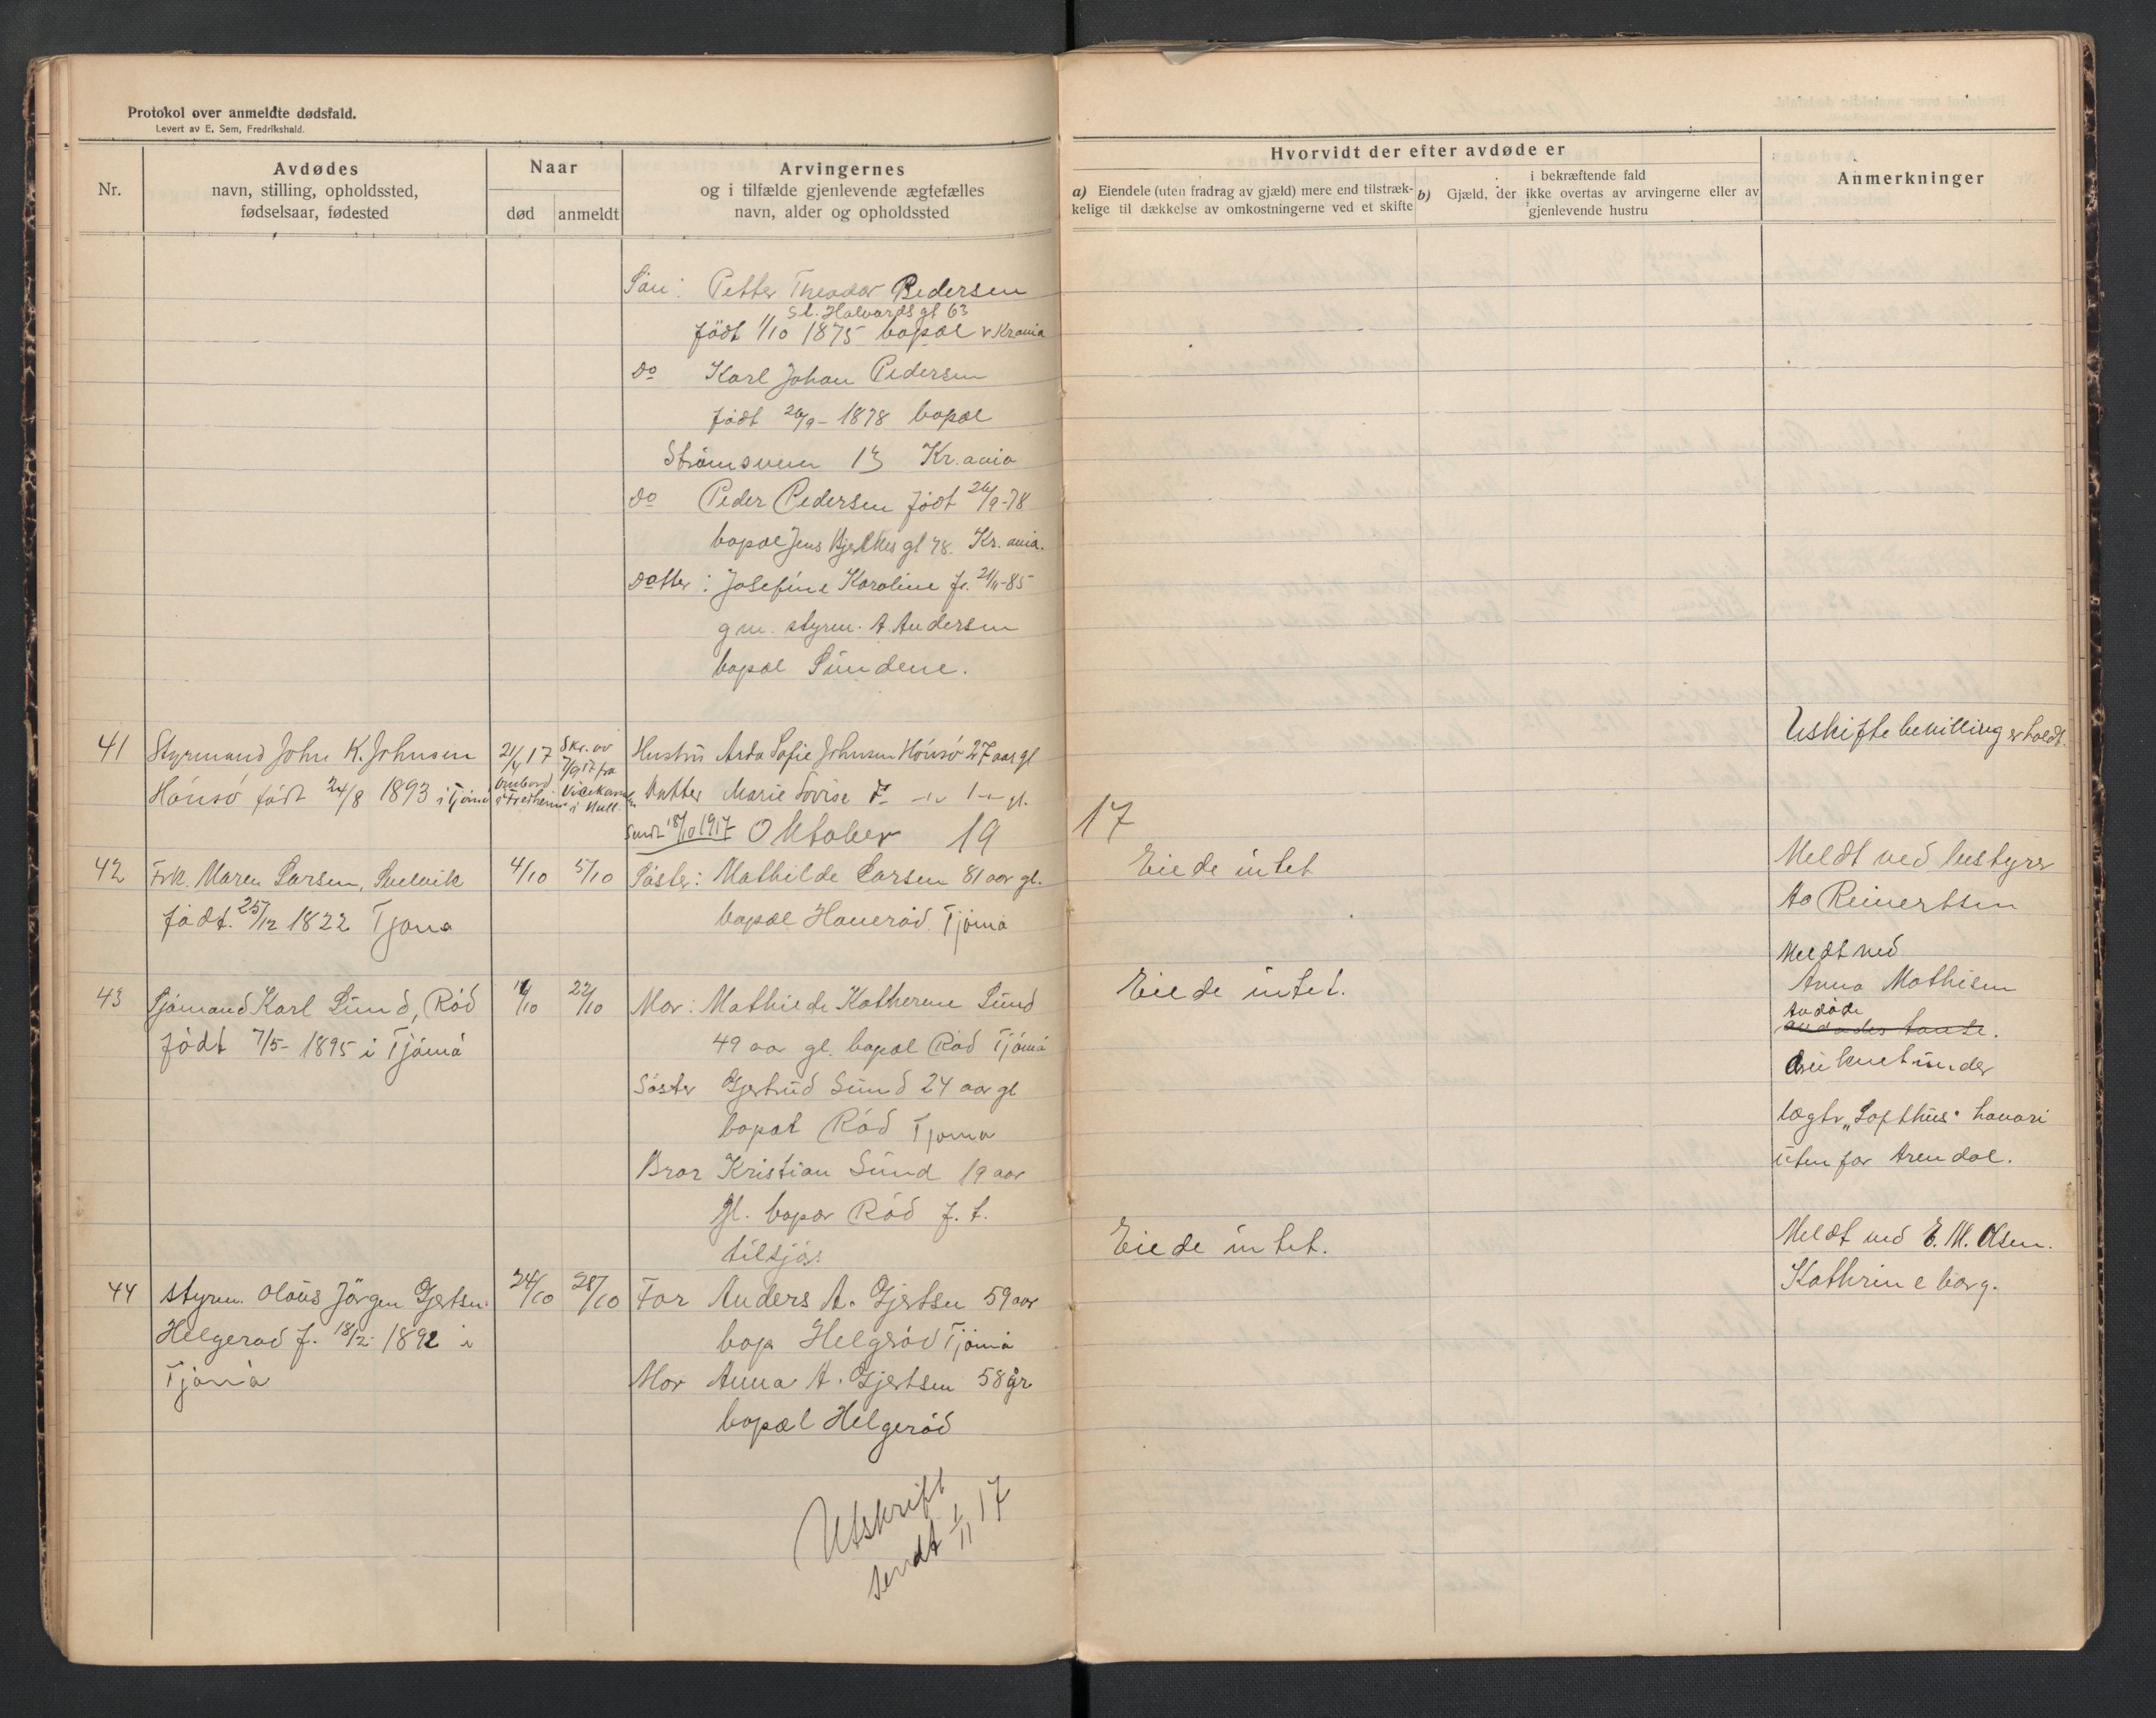 Protokol over anmeldte dødsfald.
Levert av E. Sem, Fredrikshald.
Nr.
Avdødes
navn, stilling, opholdssted,
fødselsaar, fødested
Naar
død
anmeldt
Arvingernes
og i tilfælde gjenlevende ægtefælles
navn, alder og opholdssted
Søn: Petter Theodor Pedersen
St. Halvards gt 63
født 1/10 1875 bopæl Krania
Do Karl Johan Pedersen
født 26/9 - 1878 bopæl
Strømsveien 13 Kr.ania
Do Peder Pedersen født 26/9-78
bopæl Jens Bjelkes gt 78. Kr.ania.
Datter: Josefine Karoline f. 21/11-85
gm. styrm. A. Andersen
bopæl Sundene.
41 Styrmand John K. Johnsen
Hønsø født 24/8 1893 i Tjømø
21/4 17
ombord
i Fredheim
Skr. av
7/9 17 fra
Vicekonsulen
i Hull.
Hustru Asta Sofie Johnsen Hønsø 27 aar gl
Datter Marie Lovise
Sendt 18/10 1917 Oktober 19
42 Frk. Maren Larsen, Suelvik
født. 25/12 1822 Tjømø
4/10 5/10
Søster: Mathilde Larsen 81 aar gl.
bopæl Hauerød. Tjømø
43 Sjømand Karl Lund, Rød
født 7/5 - 1895 i Tjømø
22/10
Mor: Mathilde Katherine Lund
49 aar gl. bopæl Rød Tjømø
Søster Gjertrud Lund 24 aar gl
bopæl Rød Tjømø
Bror Kristian Lund 19 aar
gl. bopæl Rød f. t.
tilsjøs.
44 styrm. Olaus Jørgen Gjertsen.
Helgerød f. 18/2 - 1892 i
Tjømø
24/10 28/10
Far Anders A. Gjertsen 59 aar
bop Helgerød Tjømø
Mor Anna A. Gjertsen 58 år
bopæl Helgerød
Utskrift
sendt 1/11 17
Hvorvidt der efter avdøde er
a) Eiendele (uten fradrag av gjæld) mere end tilstræk-
kelige til dækkelse av omkostningerne ved et skifte
b) Gjæld, der
i bekræftende fald
ikke overtas av arvingerne eller av
gjenlevende hustru
Anmerkninger
Uskiftebevilling erholdt.
17
Eiede intet
Meldt ved bestyrer
Ao Reinertsen
Eiede intet.
Meldt ved
Anna Mathisen
Avdøde
avdødes tante.
druknet under
lægtr. „Lofthus“ havari
utenfor Arendal.
Eiede intet.
Meldt ved E. M. Olsen.
Kathrineborg.